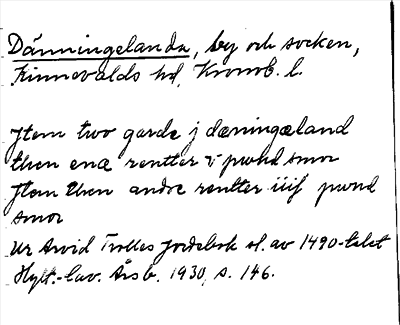 Dänningelanda, by och socken,
Kinnevalds hd, Kronob. l.
Jtem two garde j dæningæland
then ena rentter vj pwnd smor
Jtem then andre rentter iiij pwnd
smor
Ur Arvid Trolles jordebok sl. av 1490-talet
Hylt.-Cav. Årsb. 1930, s. 146.